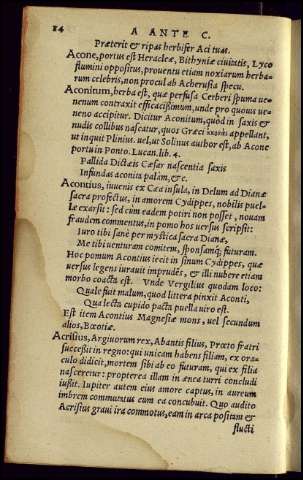 14 A ANTE C.
Præterit & ripas herbifer Aci tuas.
Acone, portus est Heracleæ, Bithyniæ ciuitatis, Lyco
flumini oppositus, prouentu etiam noxiarum herba-
rum celebris, non procul ab Acherusia specu.
Aconitum, herba est, quæ perfusa Cerberi spuma ue-
nenum contraxit efficacissimum, unde pro quouis ue-
neno accipitur. Dicitur Aconitum, quòd in saxis &
nudis collibus nascatur, quos Græci appellant,
ut inquit Plinius. uel, ut Solinus author est, ab Acone
portu in Ponto. Lucan. lib. 4.
Pallida Dictæis Cæsar nascentia saxis
Infundas aconita palam, &c.
Acontius, iuuenis ex Cæa insula, in Delum ad Dianæ
sacra profectus, in amorem Cydippes, nobilis puel-
læ exarsit: sed cum eadem potiri non posset, nouam
fraudem commentus, in pomo hos uersus scripsit:
Iuro tibi sanè per mystica sacra Dianæ,
Me tibi uenturam comitem, sponsamq́; futuram.
Hoc pomum Acontius iecit in sinum Cydippes, quæ
uersus legens iurauit imprudẽs, & illi nubere etiam
morbo coacta est. Vnde Vergilius quodam loco:
Quale fuit malum, quod littera pinxit Aconti,
Qua lecta cupido pacta puella uiro est.
Est item Acontius Magnesiæ mons, uel secundum
alios, Bœotiæ.
Acrisius, Argiuorum rex, Abantis filius, Prœto fratri
successit in regno: qui unicam habens filiam, ex ora-
culo didicit, mortem sibi ab eo futuram, qui ex filia
nasceretur: propterea illam in ænea turri concludi
iussit. Iupiter autem eius amore captus, in aureum
imbrem commutatus cum ea concubuit. Quo audito
Acrisius graui ira commotus, eam in arca positam &
flucti